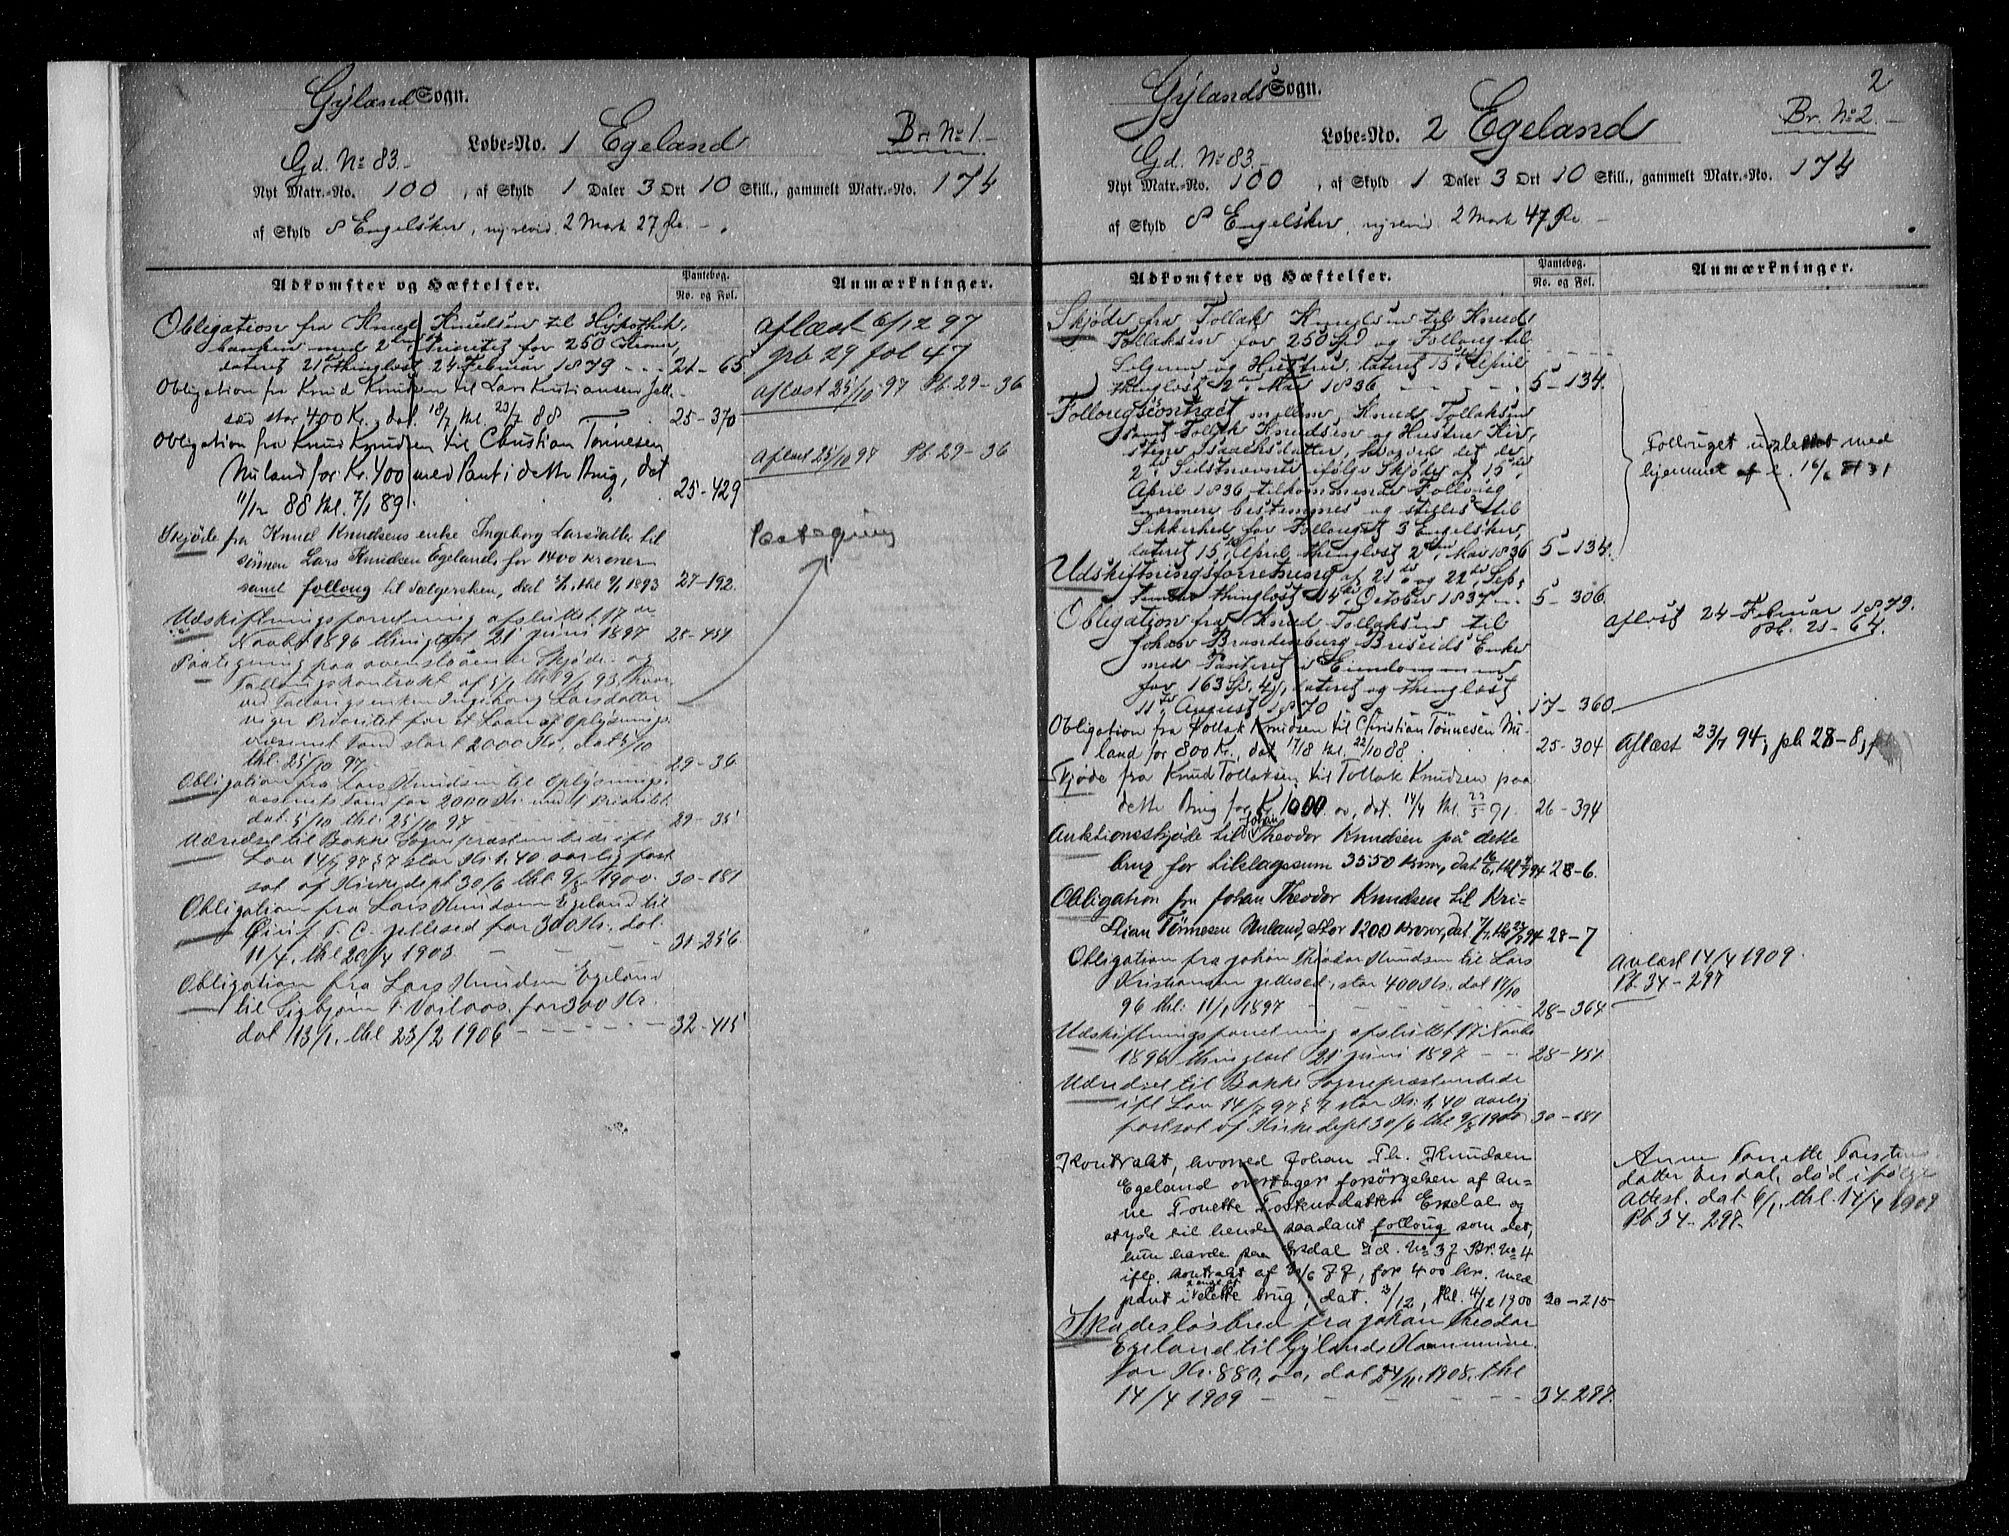 Gyland Sogn.
Løbe-No. 1 Egeland Br. No 1.
Gd. No 83.
Nyt Matr.-No. 100, af Skyld 1 Daler 3 Ort 10 Skill., gammelt Matr.-No. 174
af Skyld 8 Engelsker, ny revid. 2 Mark 27 Øre.
Adkomster og Hæftelser.
Pantebog.
No. og Fol.
Anmærkninger.
Obligation fra Knud Knudsen til Hypothek-
banken med 2den Prioritet for 250 Kroner,
dateret 21 thinglæst 24 Februar 1879 - - - 21 - 65
aflæst 6/12 97
pb 29 fol 47
Obligation fra Knud Knudsen til Lars Kristiansen Jelle-
sed stor 400 Kr., dat. 18/7, thl. 23/7 88 25-370
aflæst 25/10 97 Pb 29-36
Obligation fra Knud Knudsen til Christian Tønnesen
Nuland for Kr. 400 med Pant i dette Brug, dat
11/12 88 thl. 7/1 89. 25-429
aflæst 25/10 97 Pb. 29-36
Skjøde fra Knud Knudsens enke Ingeborg Larsdatter til
sønnen Lars Knudsen Egeland, for 1400 kroner
samt folloug til sælgersken, dat thl 9/1 1893 27-192.
Paategning
Udskiftningsforretning afsluttet 17de
Novbr 1896 thinglæst 21 juni 1897 28-454
Paategning paa ovenstaaende Skjøde og
Follougskontrakt af thl 9/1 93, hvor
ved Follougsenken Ingeborg Larsdatter
viger Prioritet for et Laan af Oplysnings
væsenets Fond stort 2000 Kr., dat 5/10
thl. 25/10 97. 29-36
Obligation fra Lars Knudsen til Oplysnings-
væsenets Fond for 2000 Kr. med 1 Prioritet
dat. 5/10 thl. 25/10 97 29-35
Udredsel til Bakke Sognepræstembede ifl
Lov 14/7 97 § 7 stor Kr. 1,40 aarlig fast
sat af Kirkedept 30/6 thl 9/8 1900. 30-181
Obligation fra Lars Knudsen Egeland til
T. C. Jellesed for 300 Kr. dat.
11/4, thl 20/4 1903 31-256
Obligation fra Lars Knudsen Egeland
til Sigbjørn T. for 300 Kr.
dat 13/1, thl 23/2 1906 32-415
2
Gylands Sogn.
Løbe-No. 2 Egeland Br. No 2.
Gd. No 83.
Nyt Matr.-No. 100, af Skyld 1 Daler 3 Ort 10 Skill., gammelt Matr.-No. 174
af Skyld 8 Engelsker, ny revid. 2 Mark 47 Øre
Adkomster og Hæftelser.
Pantebog.
No. og Fol.
Anmærkninger.
Skjøde fra Tollak Knudsen til Knud
Tollaksen for 250 Spd og Folloug til
Selgeren og Hustru, dateret 15de April
thinglæst 2den Mai 1836 5-134.
Follougscontract mellem Knud Tollaksen
samt Tollak Knudsen og Hustru Kir-
stine Isaachsdatter, hvorved det de
2de Sidstnævnte ifølge Skjøde af 15de
April 1836 tilkommende Folloug
nærmere bestemmes og stilles til
Sikkerhed for Follouget 3 Engelsker,
dateret 15de April, thinglæst 2den Mai 1836 5-134.
Follouget udslettet med
hjemmel af l. 16/6 31
Udskiftningsforretning af 21de og 22de Sep-
tember thinglæst 14de October 1837 5-306
Obligation fra Knud Tollaksen til
Johan Brandenburg Briseids Enke
med Panteret i Eiendommen
for 163 Spd., dateret og thinglæst
11te August 1870 17-360
aflæst 24 Februar 1879.
Pb. 21-64.
Obligation fra Tollak Knudsen til Christian Tønnesen Nu-
land for 800 Kr., dat 17/8 thl. 22/10 88 25-304
Aflæst 23/7 94, pb 28-8,
Skjøde fra Knud Tollaksen til Tollak Knudsen paa
dette Brug for Kr. 1000 ov, dat. 14/4 thl 23/5 91. 26-394
Auktionsskjøde til Johan Theodor Knudsen på dette
brug for tilslagssum 3550 kroner, dat thl 94 28-6.
Obligation fra Johan Theodor Knudsen til Kri-
stian Tønnesen Nuland, stor 1200 kroner, dat thl 94 28-7
Obligation fra Johan Theodor Knudsen til Lars
Kristiansen Jellesed, stor 400 Kr., dat 17/10
96 thl: 11/1 1897 28-364
Avlæst 14/4 1909.
Pb 34-297
Udskiftningsforretning afsluttet 17 Novbr
1896 thinglæst 21 juni 1897 28-454
Udredsel til Bakke Sognepræstembede
ifl Lov 14/7 97 § 7 stor Kr. 1,40 aarlig
fastsat af Kirkedept 30/6 thl 9/8 1900 30-181
Kontrakt, hvorved Johan Th. Knudsen
Egeland overtager forsørgelsen af An-
ne Tonette Torkelsdatter Eredal og
yde til hende saadant folloug som det,
hun havde paa Gd. No 37 Br. No 4
ifg. kontrakt af for 400 kr. med
pant i dette brug, dat. 3/12, thl. 4/12 1900 30-215
Anne Tonette
datter død ifølge
Attest, dat 6/1, thl. 14/4 1909
Pb 34-297
Skadesløsbrev fra Johan Theodor
Egeland til Gylands Kommune
for Kr. 880,00, dat 24/11 1908, thl
14/4 1909 34-297.